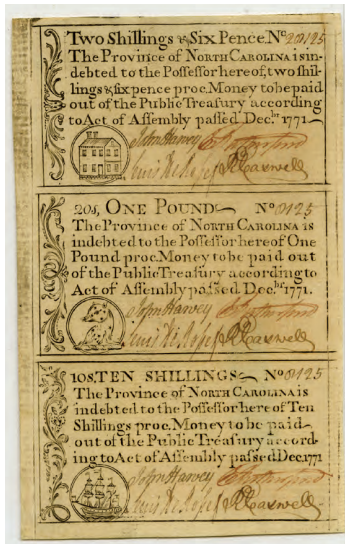 Two Shillings & Six Pence. No
The Province of NORTH CAROLINA is in-
debted to the Poſſeſſor hereof, two ſhil-
lings & ſix pence proc. Money to be paid
out of the Public Treaſury according
to Act of Aſſembly paſſed Decbr. 1771.
John Harvey
Lewis De Roſſet R Caswell
20s, ONE POUND No 0125
The Province of NORTH CAROLINA is
indebted to the Poſſeſſor here of One
Pound proc. Money to be paid out
of the Public Treaſury according to
Act of Aſſembly paſſed Decbr. 1771.
John Harvey
Lewis De Roſſet R Caswell
10s. TEN SHILLINGS No 0125
The Province of NORTH CAROLINA is
indebted to the Poſſeſſor here of Ten
Shillings proc. Money to be paid
out of the Public Treaſury accord-
ing to Act of Aſſembly paſſed Dec. 1771
John Harvey
Lewis De Roſſet R Caswell